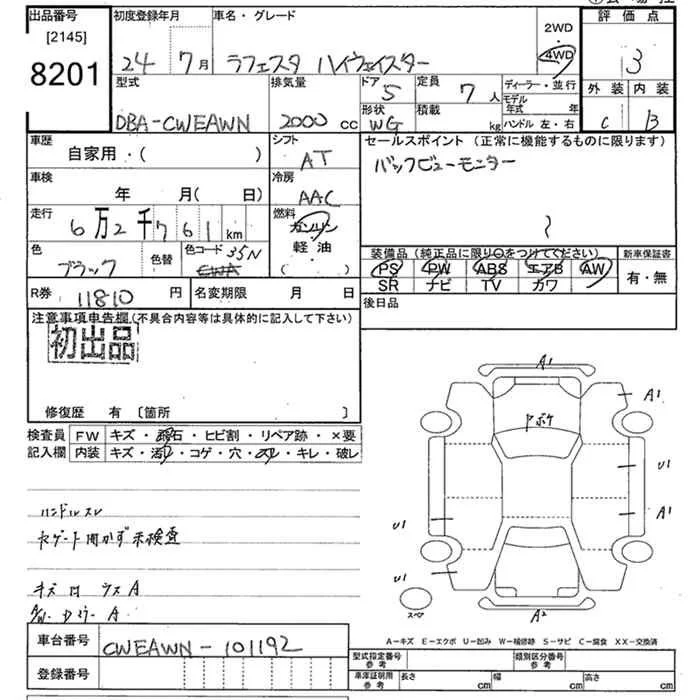 出品番号
[2145]
8201
初度登録年月
24 7月
車名・グレード
ラフェスタ ハイウェイスター
2WD
・
4WD
評価点
3
外装 内装
C B
型式
DBA-CWEAWN
排気量
2000 cc
ドア 5
形状 WG
定員 7 人
積載 kg
ディーラー・並行
モデル年式 年
ハンドル 左・右
車歴
自家用・( )
シフト
AT
セールスポイント (正常に機能するものに限ります)
バックビューモニター
車検
年 月( 日)
冷房
AAC
走行
6万2千761km
燃料
ガソリン
・
軽油
( )
色
ブラック
色替
色コード 35N
CWA
装備品 (純正品に限り○をつけてください)
PS PW ABS エアB AW
SR ナビ TV カワ
新車保証書
有・無
R券 11810 円
名変期限 月 日
後日品
注意事項申告欄(不具合内容等は具体的に記入して下さい)
初出品
修復歴 有 〔箇所 〕
検査員記入欄
FW キズ・飛石・ヒビ割・リペア跡・×要
内装 キズ・汚れ・コゲ・穴・スレ・キレ・破レ
ハンドルスレ
キズ 凹 ウス A
A/W A
A1
A1
U1
A1
U1
U1
A2
スペア
A-キズ E-エクボ U-凹み W-補修跡 S-サビ C-腐食 XX-交換済
車台番号 CWEAWN-101192
登録番号
型式指定番号 参考
類別区分番号 参考
車庫証明用 参考
長さ cm
幅 cm
高さ cm